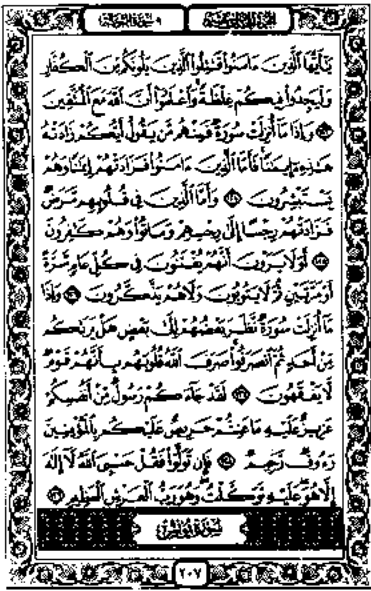 الجزء الحادي عشر
٩ سورة التوبة
يَٰٓأَيُّهَا ٱلَّذِينَ ءَامَنُوا۟ قَٰتِلُوا۟ ٱلَّذِينَ يَلُونَكُم مِّنَ ٱلْكُفَّارِ
وَلْيَجِدُوا۟ فِيكُمْ غِلْظَةً ۚ وَٱعْلَمُوٓا۟ أَنَّ ٱللَّهَ مَعَ ٱلْمُتَّقِينَ
﴿١٢٣﴾ وَإِذَا مَآ أُنزِلَتْ سُورَةٌ فَمِنْهُم مَّن يَقُولُ أَيُّكُمْ زَادَتْهُ
هَٰذِهِۦٓ إِيمَٰنًا ۚ فَأَمَّا ٱلَّذِينَ ءَامَنُوا۟ فَزَادَتْهُمْ إِيمَٰنًا وَهُمْ
يَسْتَبْشِرُونَ ﴿١٢٤﴾ وَأَمَّا ٱلَّذِينَ فِى قُلُوبِهِم مَّرَضٌ
فَزَادَتْهُمْ رِجْسًا إِلَىٰ رِجْسِهِمْ وَمَاتُوا۟ وَهُمْ كَٰفِرُونَ
﴿١٢٥﴾ أَوَلَا يَرَوْنَ أَنَّهُمْ يُفْتَنُونَ فِى كُلِّ عَامٍ مَّرَّةً
أَوْ مَرَّتَيْنِ ثُمَّ لَا يَتُوبُونَ وَلَا هُمْ يَذَّكَّرُونَ ﴿١٢٦﴾ وَإِذَا
مَآ أُنزِلَتْ سُورَةٌ نَّظَرَ بَعْضُهُمْ إِلَىٰ بَعْضٍ هَلْ يَرَىٰكُم
مِّنْ أَحَدٍ ثُمَّ ٱنصَرَفُوا۟ ۚ صَرَفَ ٱللَّهُ قُلُوبَهُم بِأَنَّهُمْ قَوْمٌ
لَّا يَفْقَهُونَ ﴿١٢٧﴾ لَقَدْ جَآءَكُمْ رَسُولٌ مِّنْ أَنفُسِكُمْ
عَزِيزٌ عَلَيْهِ مَا عَنِتُّمْ حَرِيصٌ عَلَيْكُم بِٱلْمُؤْمِنِينَ
رَءُوفٌ رَّحِيمٌ ﴿١٢٨﴾ فَإِن تَوَلَّوْا۟ فَقُلْ حَسْبِىَ ٱللَّهُ لَآ إِلَٰهَ
إِلَّا هُوَ ۖ عَلَيْهِ تَوَكَّلْتُ ۖ وَهُوَ رَبُّ ٱلْعَرْشِ ٱلْعَظِيمِ ﴿١٢٩﴾
سورة يونس
٢٠٧